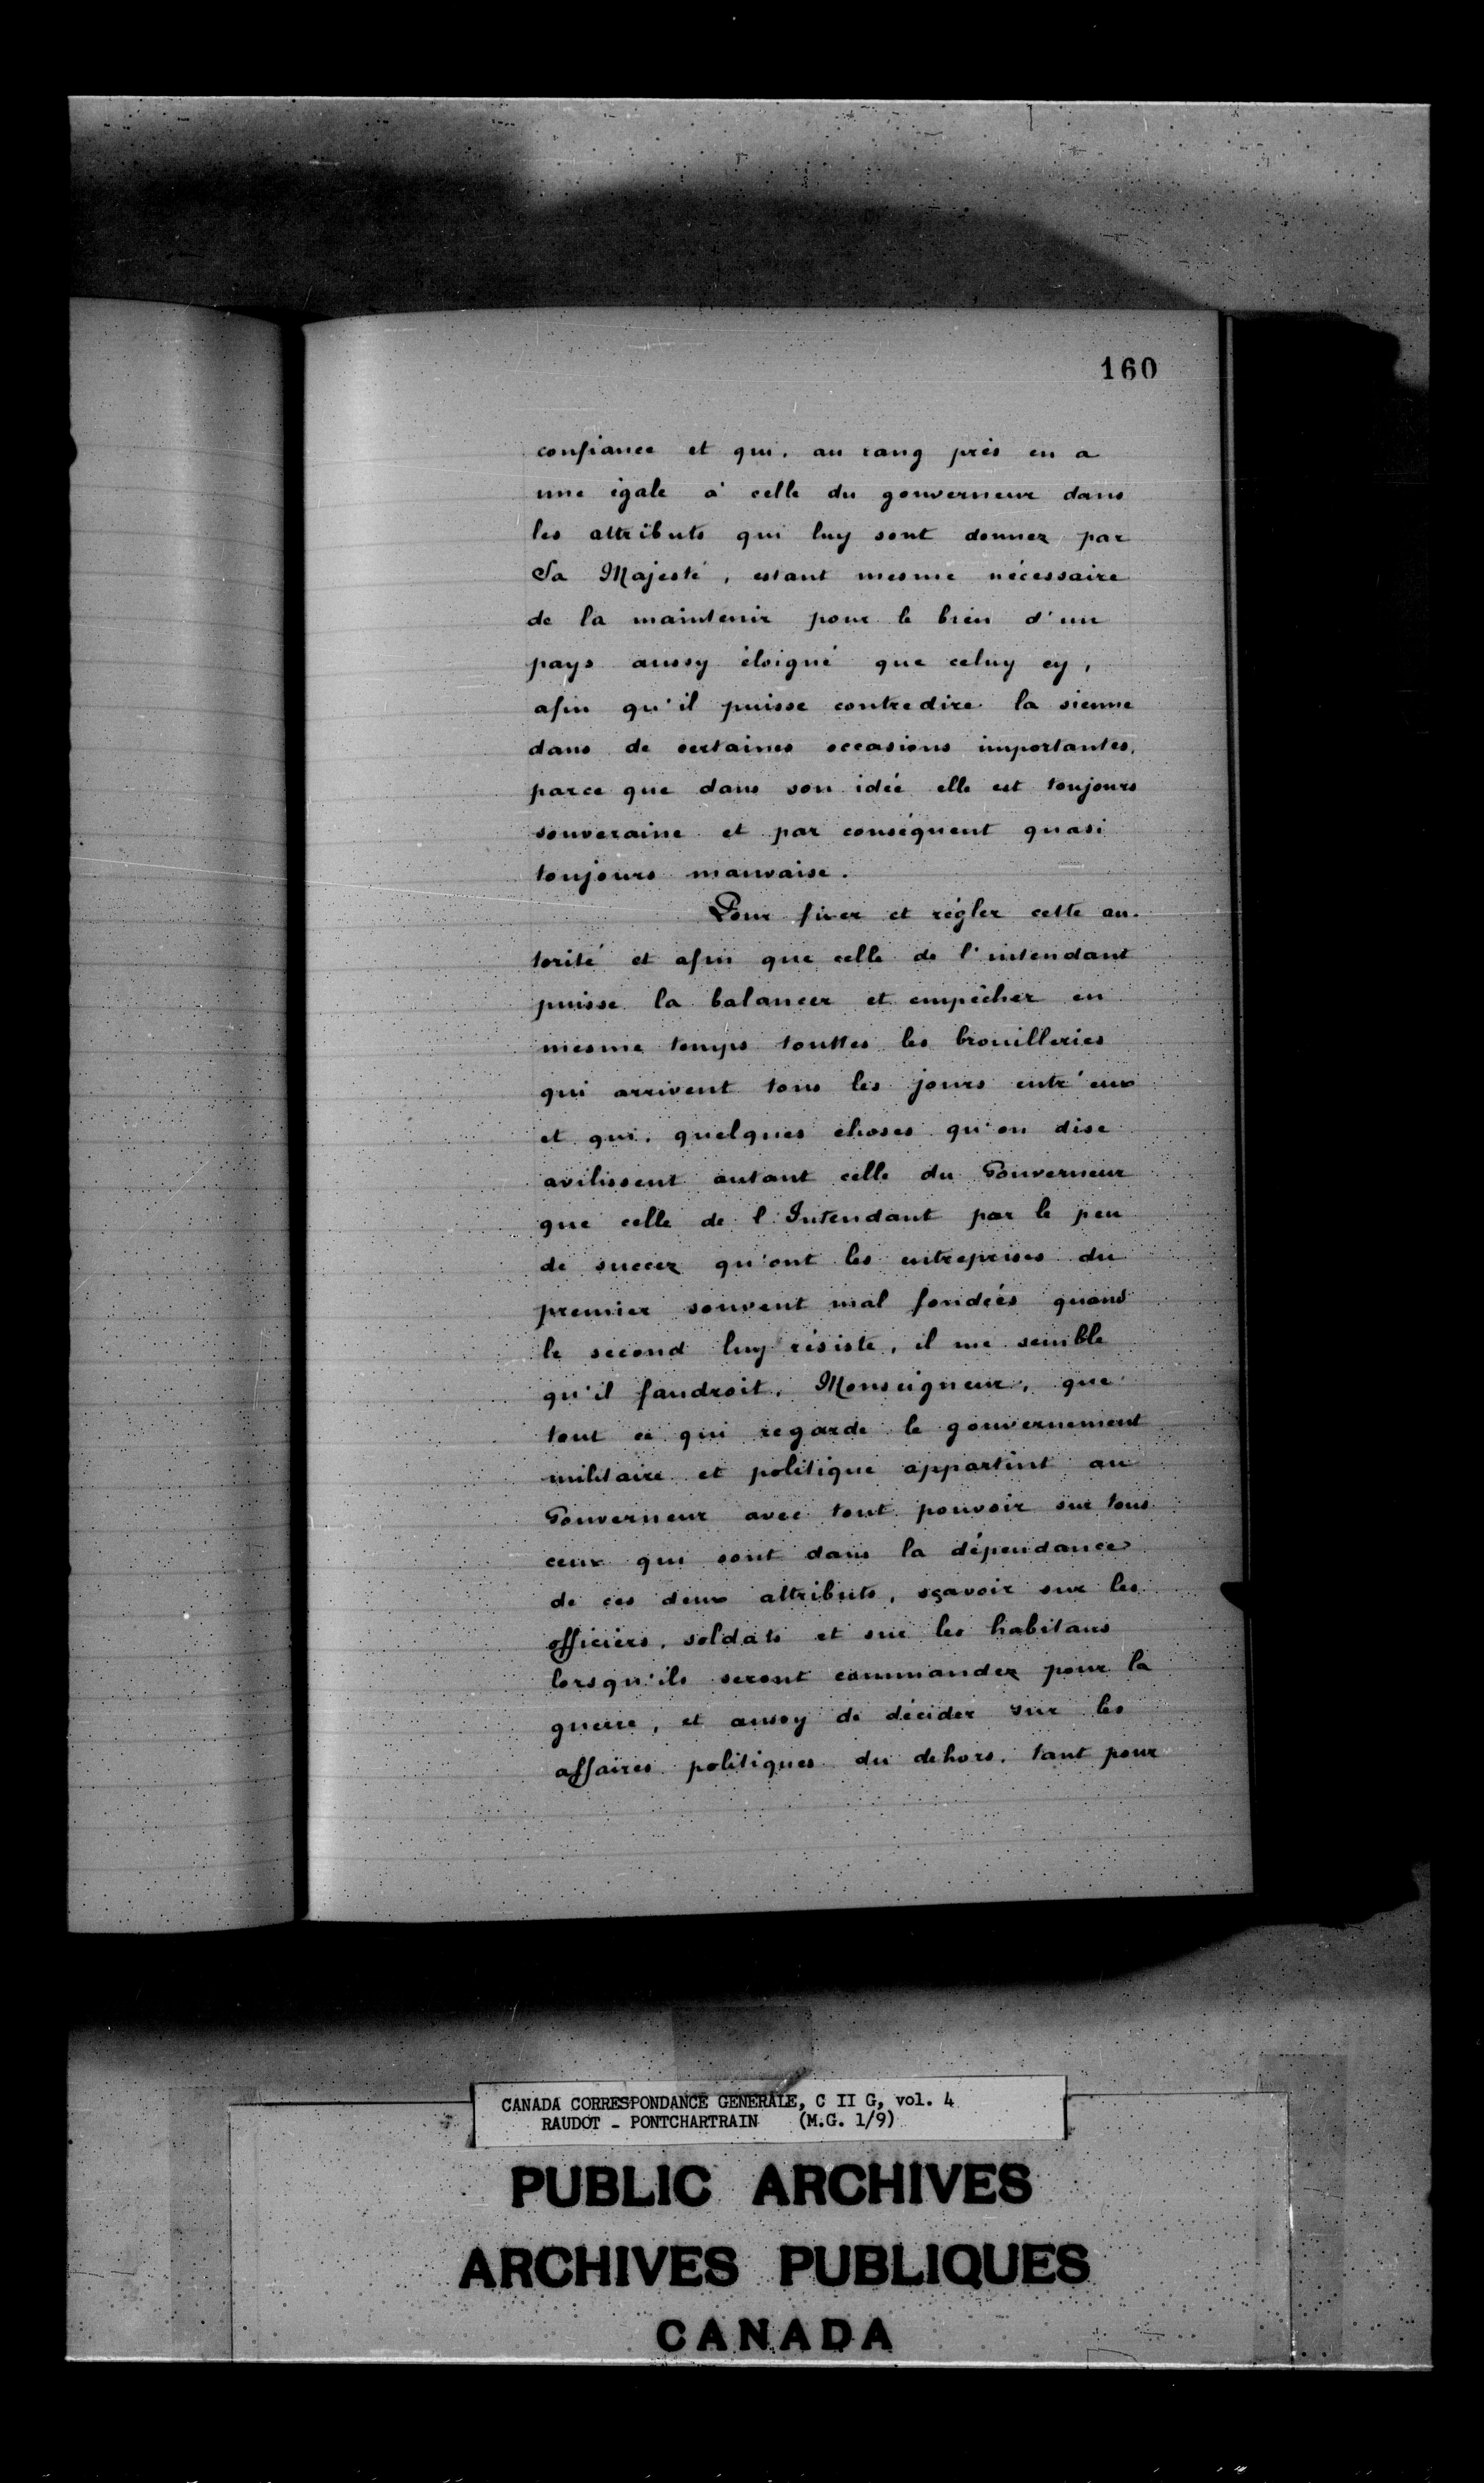 160
confiance et qui, au rang près en a
une égale à celle du gouverneur dans
les attributs qui luy sont donnez par
Sa Majesté, estant mesme nécessaire
de la maintenir pour le bien d'un
pays aussy éloigné que celuy cy,
afin qu'il puisse contredire la sienne
dans de certaines occasions importantes,
parce que dans son idée elle est toujours
souveraine et par conséquent quasi
toujours mauvaise.
Pour fixer et régler cette au-
torité et afin que celle de l'intendant
puisse la balancer et empêcher en
mesme temps touttes les brouilleries
qui arrivent tous les jours entr'eux
et qui, quelques choses qu'on dise
avilissent autant celle du Gouverneur
que celle de l'Intendant par le peu
de succez qu'ont les entreprises du
premier souvent mal fondées quand
le second luy résiste, il me semble
qu'il faudroit, Monseigneur, que
tout ce qui regarde le gouvernement
militaire et politique appartint au
Gouverneur avec tout pouvoir sur tous
ceux qui sont dans la dépendance
de ces deux attributs, sçavoir sur les
officiers, soldats et sur les habitans
lorsqu'ils seront commandez pour la
guerre, et aussy de décider sur les
affaires politiques du dehors, tant pour
CANADA CORRESPONDANCE GENERALE, C II G, vol. 4
RAUDOT - PONTCHARTRAIN (M.G. 1/9)
PUBLIC ARCHIVES
ARCHIVES PUBLIQUES
CANADA